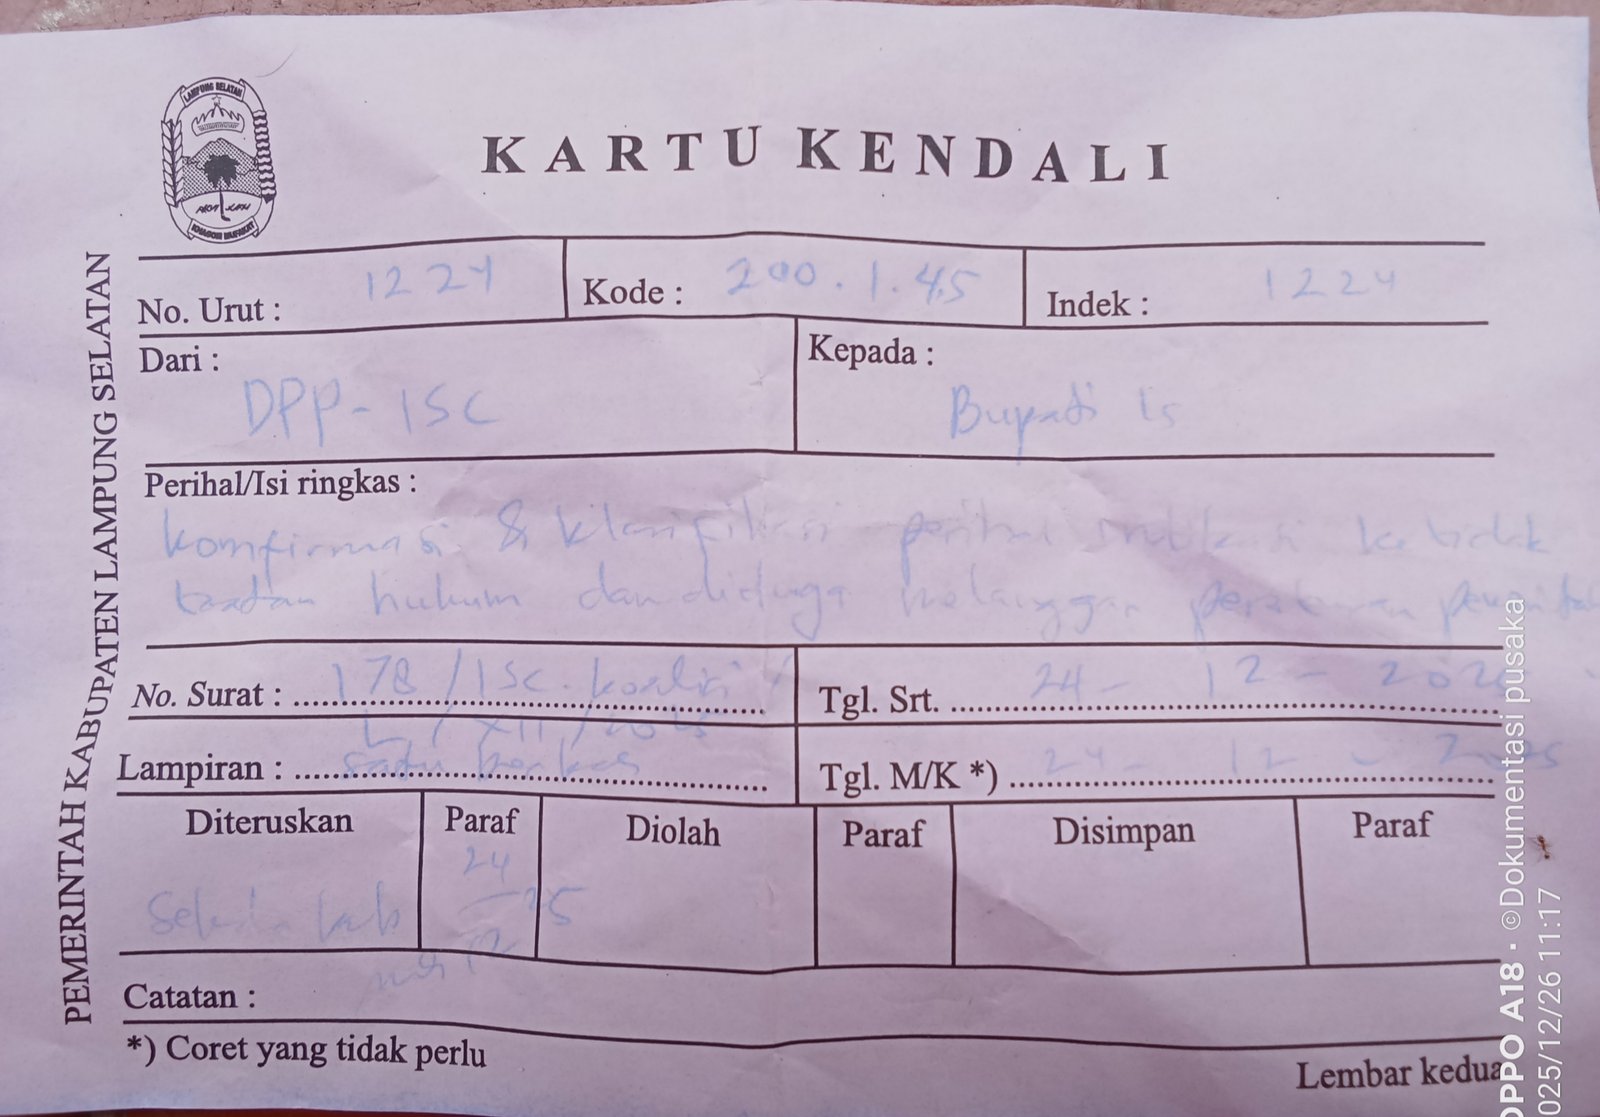 LAMPUNG SELATAN
KARTU KENDALI
PEMERINTAH KABUPATEN LAMPUNG SELATAN
No. Urut : 1224
Kode : 200.1.4.5
Indek : 1224
Dari :
DPP-ISC
Kepada :
Bupati LS
Perihal/Isi ringkas :
Komfirmasi & klarifikasi perihal indikasi ketidak
taatan hukum dan diduga melanggar peraturan
No. Surat : 178/ISC.koalisi
L/XII/2025
Tgl. Srt. 24-12-2025
Lampiran : satu berkas
Tgl. M/K *) 24-12-2025
Diteruskan
Paraf
Diolah
Paraf
Disimpan
Paraf
24
12 25
Catatan :
*) Coret yang tidak perlu
Lembar kedua
OPPO A18 · ©Dokumentasi pusaka
025/12/26 11:17